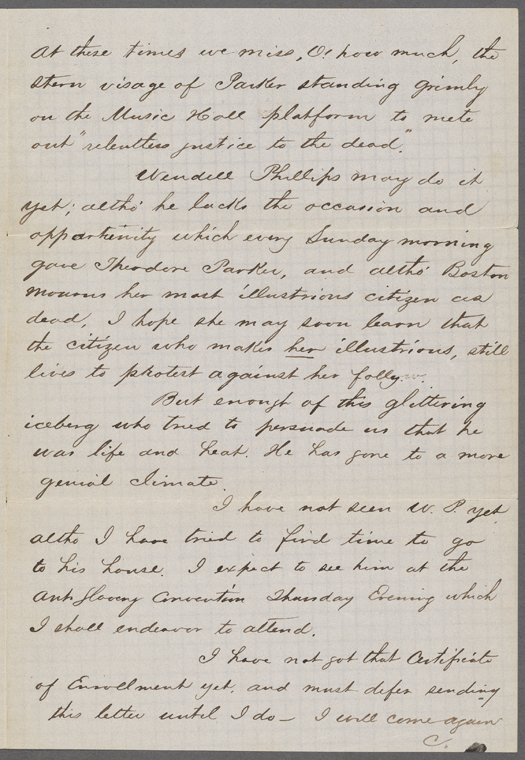 At these times we miss, O! how much, the
stern visage of Parker standing grimly
on the Music Hall platform to mete
out "relentless justice to the dead".
Wendell Phillips may do it
yet; altho' he lacks the occasion and
opportunity which every Sunday morning
gave Theodore Parker, and altho' Boston
mourns her most illustrious citizen as
dead, I hope she may soon learn that
the citizen who makes her illustrious, still
lives to protest against her folly.
But enough of this glittering
iceberg who tried to persuade us that he
was life and heat. He has gone to a more
genial climate.
I have not seen W. P. yet
altho I have tried to find time to go
to his house. I expect to see him at the
Anti Slavery Convention Thursday Evening which
I shall endeavor to attend.
I have not got that Certificate
of Enrollment yet, and must defer sending
this letter until I do – I will come again
C.